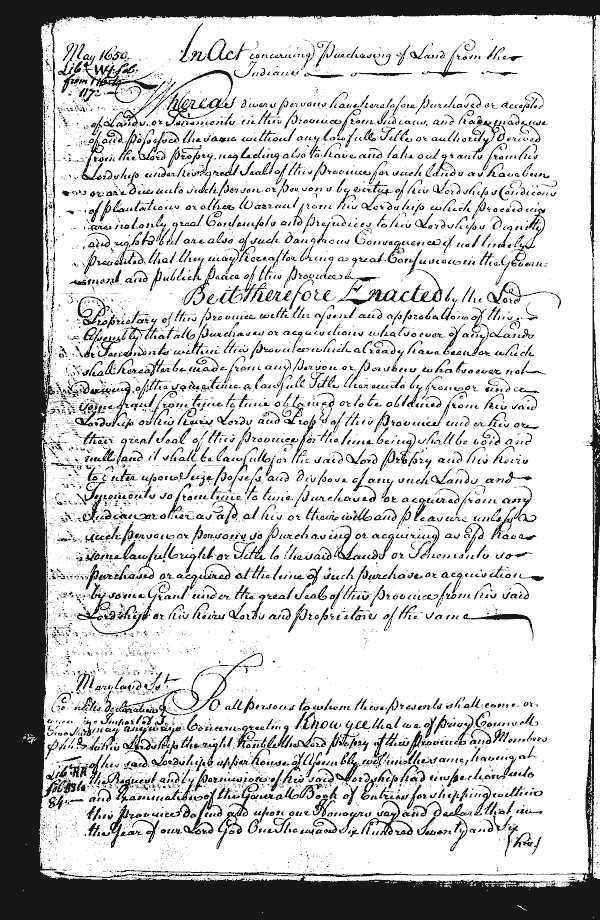 May 1650
An Act concerning Purchasing of Land from the
Indians
Whereas divers persons have heretofore purchased or accepted
of Lands, or Tenements in this Province from Indians, and have made use
of and possessed the same without any lawfull Title or authority Derived
from the Lord Propry, neglecting also to have and take out grants from his
Lordship under his great Seal of this Province for such Lands as have been
or are due unto such Person or Persons by virtue of his Lordships Conditions
of plantations or other Warrant from his Lordship which Proceedings
are not only great Contempts and Prejudices to his Lordships Dignity
and rights but are also of such dangerous Consequence if not timely
prevented that they may hereafter bring a great Confusion in the Govern-
ment and Publick Peace of this Province
Be it therefore Enacted by the Lord
Proprietary of this Province with the assent and approbation of this
Assembly that all purchases or acquisitions whatsoever of any Lands
or Tenements within this Province which already have been or which
shall hereafter be made from any Person or Persons whatsoever not
deriving at the same time a lawfull Title thereunto by from or under
some grant from time to time obtained or to be obtained from his said
Lordship or his heirs Lords and Proprs of this Province under his or
their great Seal of this Province for the time being shall be void and
null, and it shall be lawfull for the said Lord Propry and his heirs
to Enter upon Seize Possess and dispose of any such Lands and
Tenements so from time to time purchased or acquired from any
Indian or other as afsd at his or their will and pleasure unless
such Person or Persons so purchasing or acquiring as afsd have
some lawfull right or Title to the said Lands or Tenements so
purchased or acquired at the time of such Purchase or acquisition
by some Grant under the great Seal of this Province from his said
Lordship or his heires Lords and Proprietors of the same
Maryland Sst
To all Persons to whom these presents shall come or
may anyways Concern greeting Know yee that we of Privy Councill
to his Lordship the right honble the Lord Propry of this Province and Members
of his said Lordships upper house of Assembly within the same, having at
the Request and by permission of his said Lordship had inspection into
and Examination of the Generall Book of Entries for shipping within
this Province do find and upon our Honours say and declare that in
the Year of our Lord God One Thousand Six hundred Seventy and Six